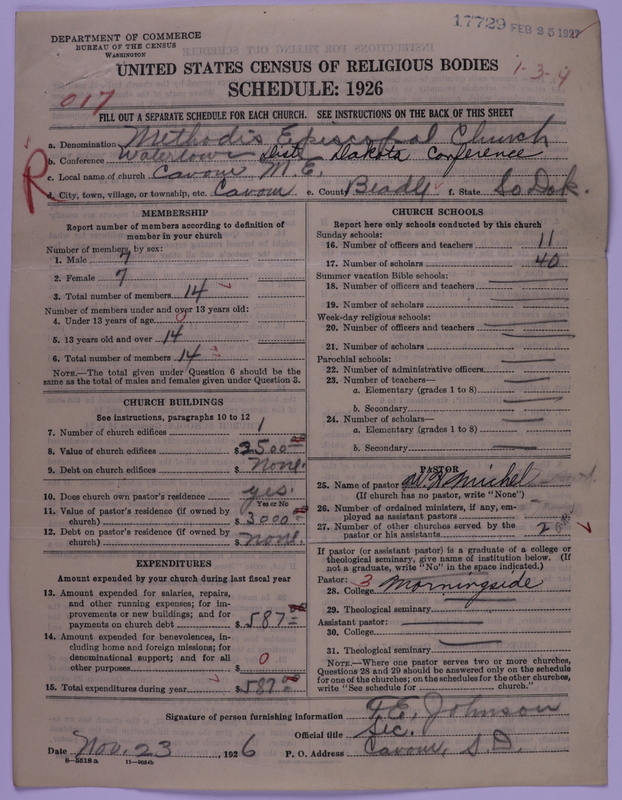 17729 FEB 25 1927
DEPARTMENT OF COMMERCE
BUREAU OF THE CENSUS
WASHINGTON
UNITED STATES CENSUS OF RELIGIOUS BODIES
1-3-4
SCHEDULE: 1926
017
FILL OUT A SEPARATE SCHEDULE FOR EACH CHURCH. SEE INSTRUCTIONS ON THE BACK OF THIS SHEET
a. Denomination Methodis Episcopal Church
b. Conference Watertown Dist. Dakota Conference
c. Local name of church Cavour M.E.
R
d. City, town, village, or township, etc. Cavour e. County Beadle f. State So Dak.
MEMBERSHIP
Report number of members according to definition of
member in your church
Number of members, by sex:
1. Male 7
2. Female 7
3. Total number of members 14
Number of members under and over 13 years old:
4. Under 13 years of age 0
5. 13 years old and over 14
6. Total number of members 14
NOTE.—The total given under Question 6 should be
the same as the total of males and females given under Question 3.
CHURCH BUILDINGS
See instructions, paragraphs 10 to 12
7. Number of church edifices 1
8. Value of church edifices $ 3500 00
9. Debt on church edifices $ None.
10. Does church own pastor's residence yes.
Yes or No
11. Value of pastor's residence (if owned by
church) $ 3000
12. Debt on pastor's residence (if owned by
church) $ none.
EXPENDITURES
Amount expended by your church during last fiscal year
13. Amount expended for salaries, repairs,
and other running expenses; for im-
provements or new buildings; and for
payments on church debt $ 587 00
14. Amount expended for benevolences, in-
cluding home and foreign missions; for
denominational support; and for all
other purposes $ 0
15. Total expenditures during year $ 587 00
CHURCH SCHOOLS
Report here only schools conducted by this church
Sunday schools:
16. Number of officers and teachers 11
17. Number of scholars 40
Summer vacation Bible schools:
18. Number of officers and teachers
19. Number of scholars
Week-day religious schools:
20. Number of officers and teachers
21. Number of scholars
Parochial schools:
22. Number of administrative officers
23. Number of teachers—
a. Elementary (grades 1 to 8)
b. Secondary
24. Number of scholars—
a. Elementary (grades 1 to 8)
b. Secondary
PASTOR
25. Name of pastor Michel
(If church has no pastor, write "None")
26. Number of ordained ministers, if any, em-
ployed as assistant pastors
27. Number of other churches served by the
pastor or his assistants 2
If pastor (or assistant pastor) is a graduate of a college or
theological seminary, give name of institution below. (If
not a graduate, write "No" in the space indicated.)
Pastor: 3
28. College Morningside
29. Theological seminary
Assistant pastor:
30. College
31. Theological seminary
NOTE.—Where one pastor serves two or more churches,
Questions 28 and 29 should be answered only on the schedule
for one of the churches; on the schedules for the other churches,
write "See schedule for church."
Signature of person furnishing information J.E. Johnson
Official title Sec.
Date Nov. 23, 1926 P. O. Address Cavour, S.D.
8—5518 a 11—9054b